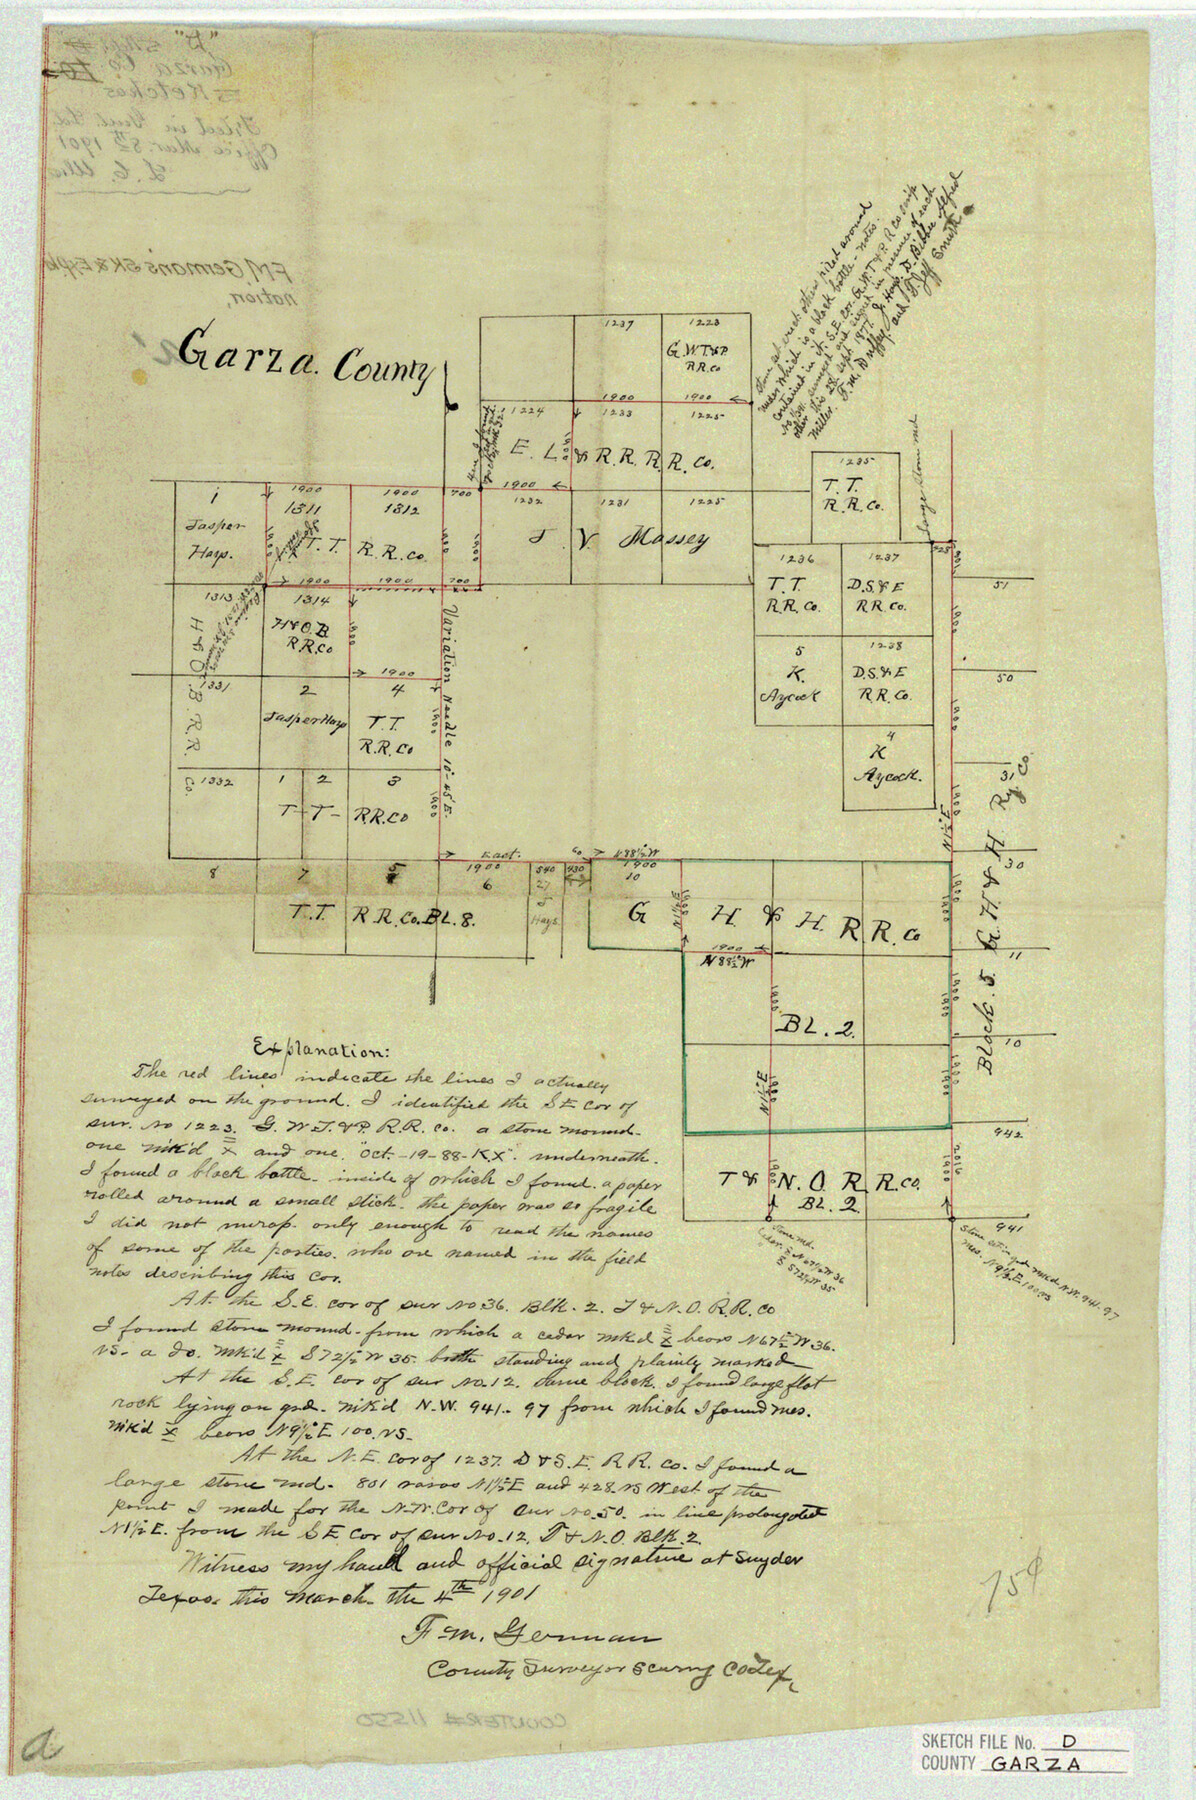 Garza. County
1237 1223
G.W.T.&P.
R.R.Co
1900 1900
1224 1233 1225
E. L. & R. R. R. R. Co.
1900
1232 1231 1225
J. V. Massey
Stone set erect others piled around
under which is a black bottle - notes.
contained in it. S.E. Cor. G.W.T.&P. R.R. Co scrip
other this 2d Sept 1877. J. Hays. D. Bibbee Alfred
Miller. F.M. Duffey. and T. Jeff Smith
large stone md
1235
T. T.
R.R.Co.
1236 1237
T. T. D.S.&E
R.R.Co. R.R.Co.
5 1238
K. D.S.&E
Aycock R.R.Co.
4
K
Aycock.
1 1900 1900 700
1311 1312
Jasper
Hays.
T. T. R.R.Co.
1900 1900 700
1313 1314
H & O. B. R.R. Co.
H&O.B.
R.R.Co
1900
1331 2 4
Jasper Hays T.T.
R.R.Co
1332 1 2 3
T- T- R.R.Co
Variation Needle 10°-45'E.
East. 60 N88½°W
8 7 5 1900 540 430 1900
6 27 10
T.T. R.R.Co.BL.8.
J
Hays
G H & H. R R. Co
1900
N88½°W
BL. 2.
N1½°E
T & N.O. R R.Co.
BL. 2
51
50
31
30
11
10
942
941
Block. 5. G. H & H Ry Co
N1½°E
Stone md.
Cedar. N67½°W 36
S72½°W 35
Stone set in gd mkd N.W. 941-97
Mes. N9½°E 100 vs
Explanation:
The red lines indicate the lines I actually
surveyed on the ground. I identified the S E Cor of
sur. No 1223. G. W. T. & P. R.R. Co. a stone mound-
one mk'd X and one. "Oct-19-88-K.X". underneath.
I found a black bottle- inside of which I found. a paper
rolled around a small stick. the paper was so fragile
I did not unrap. only enough to read the names
of some of the parties. who are named in the field
notes describing this Cor.
At. the S.E. cor of sur No 36. Blk. 2. T & N.O. R.R. Co
I found stone mound. from which a cedar mk'd X bears N67½°W 36.
vs- a do. mk'd X S72½°W 35. both standing and plainly marked
At the S.E. cor of sur No. 12. same block. I found large flat
rock lying on grd. mk'd N.W. 941.- 97 from which I found mes.
mk'd X bears N9½°E 100. vs-
At the N.E. cor of 1237. D & S. E. R R. Co. I found a
large stone md. 801 varas N1½°E and 428 vs West of the
point I made for the N.W. Cor of sur No. 50. in line prolongated
N1½°E. from the S E Cor of sur No. 12, T & N.O. Blk. 2.
Witness my hand and official signature at Snyder
Texas. this March. the 4th 1901
F. M. German
County Surveyor Scurry Co Tex,
75¢
a
COUNTER# 11550
"D"
Garza Co
Sketches
Filed in Genl. Ld.
Office Mar. 8th 1901
F.M. German's SK & Expla
nation,
SKETCH FILE No. D
COUNTY GARZA